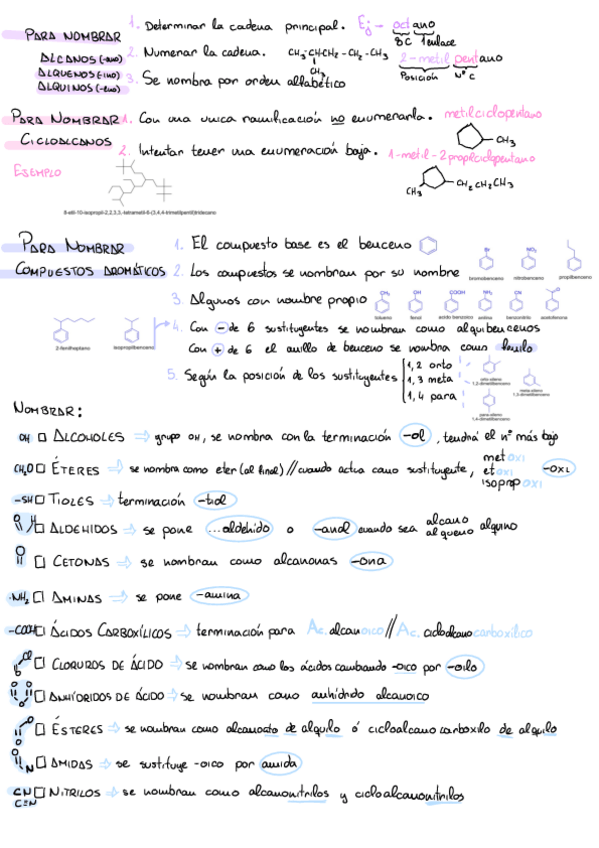 PARA NOMBRAR
ALCANOS (-ano)
ALQUENOS (-ino)
ALQUINOS (-eno)
1. Determinar la cadena principal. Ej → octano
8C 1 enlace
2. Numerar la cadena. CH₃-CH-CH₂-CH₂-CH₃
CH₃
2-metil pentano
Posición nº C
3. Se nombra por orden alfabético
PARA NOMBRAR
CICLOALCANOS
1. Con una unica ramificación no enumerarla. metilciclopentano
CH₃
2. Intentar tener una enumeración baja. 1-metil-2propilciclopentano
CH₃ CH₂CH₂CH₃
EJEMPLO
PARA NOMBRAR
COMPUESTOS AROMÁTICOS
1. El compuesto base es el benceno
2. Los compuestos se nombran por su nombre
Br NO₂
bromobenceno nitrobenceno propilbenceno
3. Algunos con nombre propio
CH₃ OH COOH NH₂ CN
tolueno fenol acido benzoico anilina benzonitrilo acetofenona
4. Con - de 6 sustituyentes se nombran como alquibencenos
Con + de 6 el anillo de benceno se nombra como fenilo
2-fenilheptano isopropilbenceno
5. Según la posición de los sustituyentes
1,2 orto
1,3 meta
1,4 para
orto-xileno
1,2-dimetilbenceno
meta-xileno
1,3-dimetilbenceno
para-xileno
1,4-dimetilbenceno
NOMBRAR:
OH ALCOHOLES ⇒ grupo OH, se nombra con la terminación -ol, tendrá el nº más bajo
CH₂O ÉTERES ⇒ se nombra como eter (al final) // cuando actua como sustituyente, metoxi
etoxi -OXI
isopropoxi
-SH TIOLES ⇒ terminación -tiol
ALDEHIDOS ⇒ se pone ...aldehido o -anal cuando sea alcano
alqueno alquino
CETONAS ⇒ se nombran como alcanonas -ona
-NH₂ AMINAS ⇒ se pone -amina
-COOH ÁCIDOS CARBOXÍLICOS ⇒ terminación para Ac. alcanoico // Ac. cicloalcano carboxílico
CLORUROS DE ÁCIDO ⇒ se nombran como los ácidos cambiando -oico por -oilo
ANHÍDRIDOS DE ÁCIDO ⇒ se nombran como anhídrido alcanoico
ÉSTERES ⇒ se nombran como alcanoato de alquilo ó cicloalcano carboxilo de alquilo
N AMIDAS ⇒ se sustituye -oico por amida
CN
C≡N NITRILOS ⇒ se nombran como alcanonitrilos y cicloalcanonitrilos